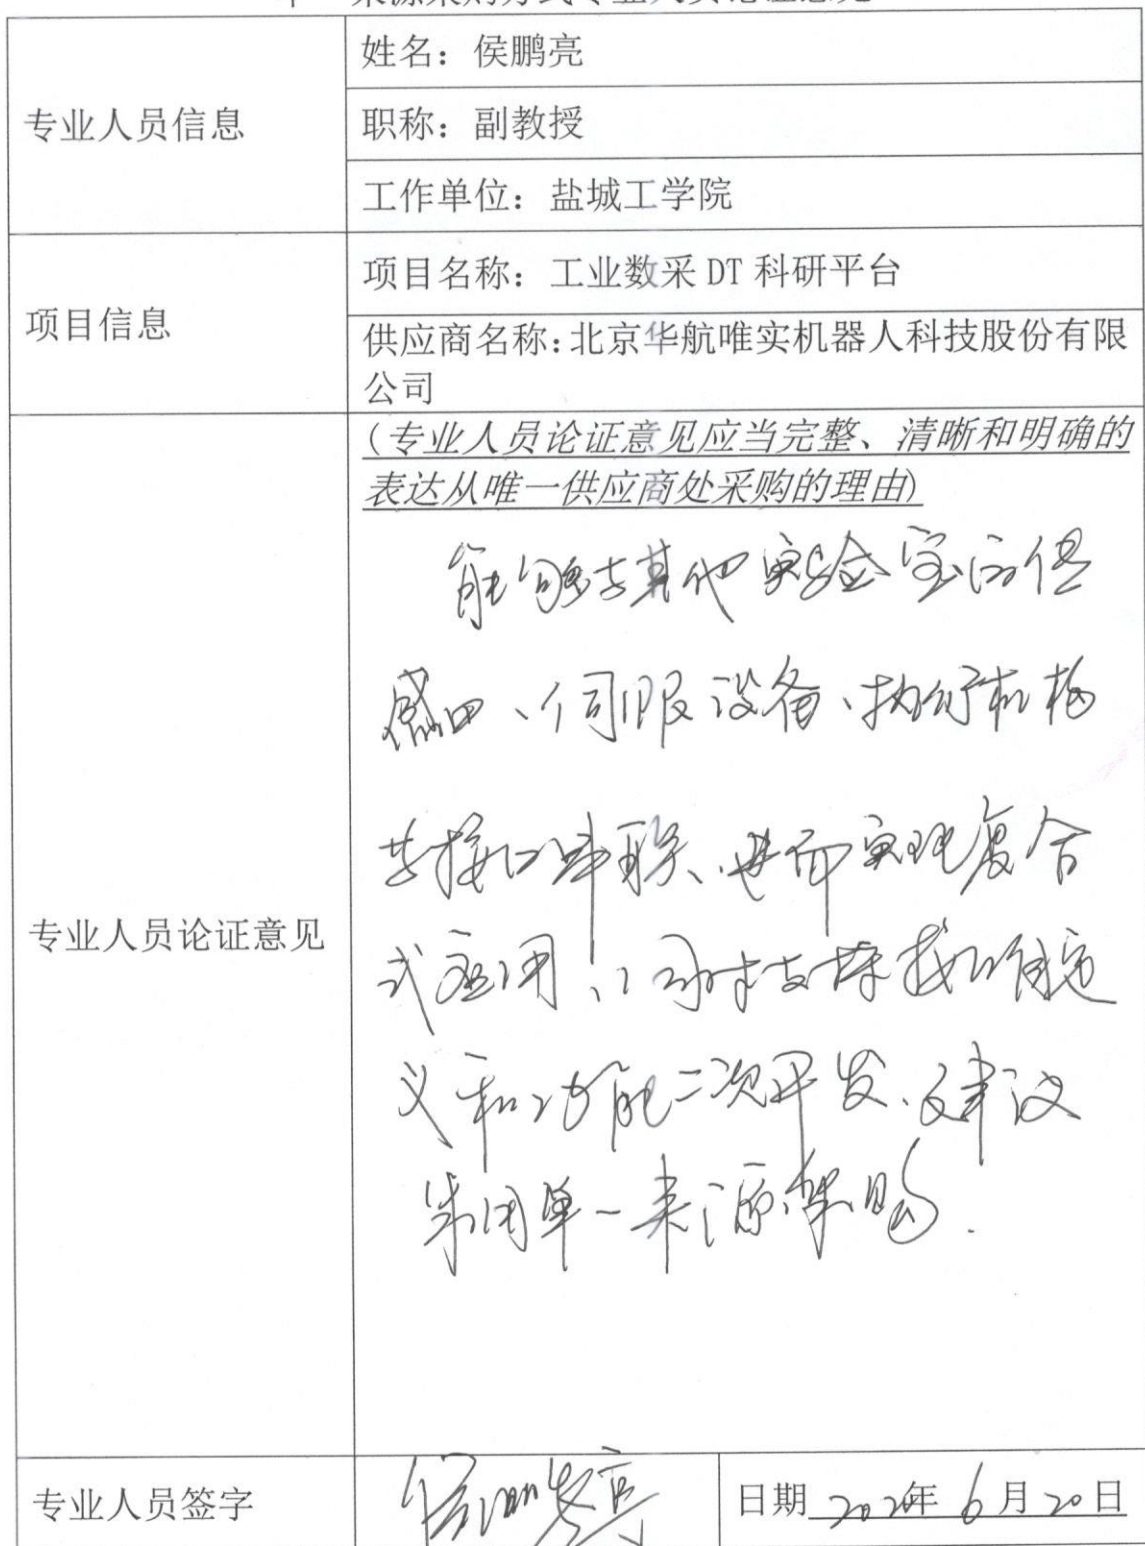 单一来源采购方式专业人员论证意见
专业人员信息
姓名：侯鹏亮
职称：副教授
工作单位：盐城工学院
项目信息
项目名称：工业数采 DT 科研平台
供应商名称：北京华航唯实机器人科技股份有限
公司
专业人员论证意见
（专业人员论证意见应当完整、清晰和明确的
表达从唯一供应商处采购的理由）
能够与其他实验室的传
感器、伺服设备、执行机构
等接口串联、进而实现复合
式应用，同时支持接口自定
义和功能二次开发、建议
采用单一来源采购.
专业人员签字
侯鹏亮
日期 年6月20日